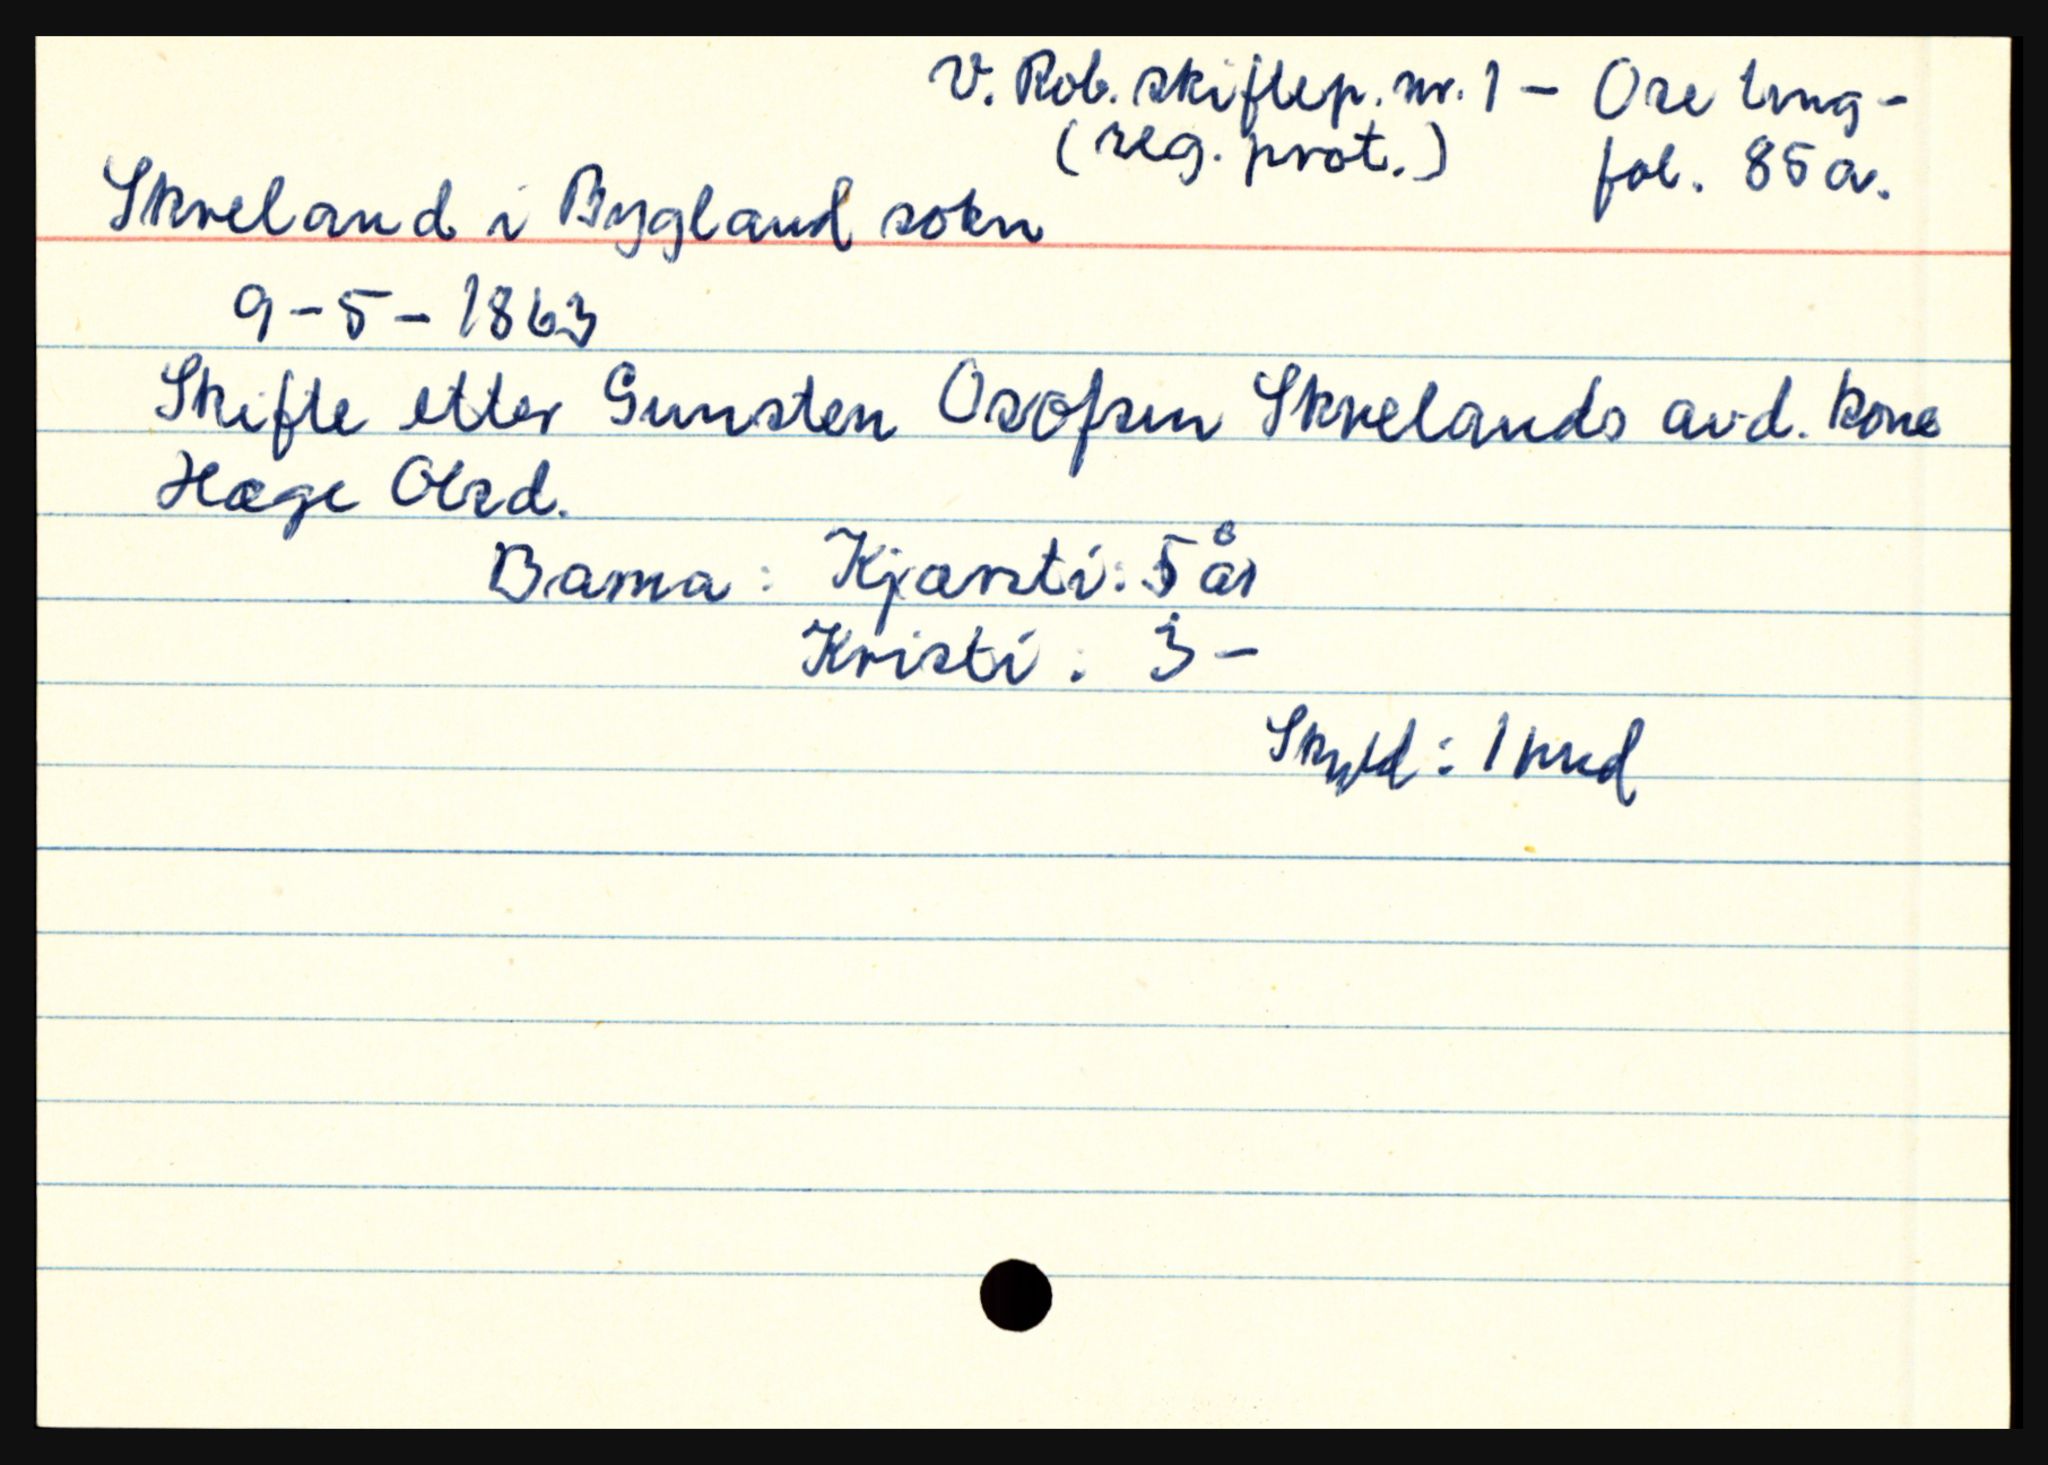 V. Rob. skiftep. nr. 1 - Ose ting-
(reg. prot.) fol. 85a.
Skreland i Bygland sokn
9-5-1863
Skifte etter Gunsten Osofsen Skrelands avd. kone
Hæge Olsd.
Barna: Kjærsti: 5 år
Kristi: 3 -
Skyld: 1 hud